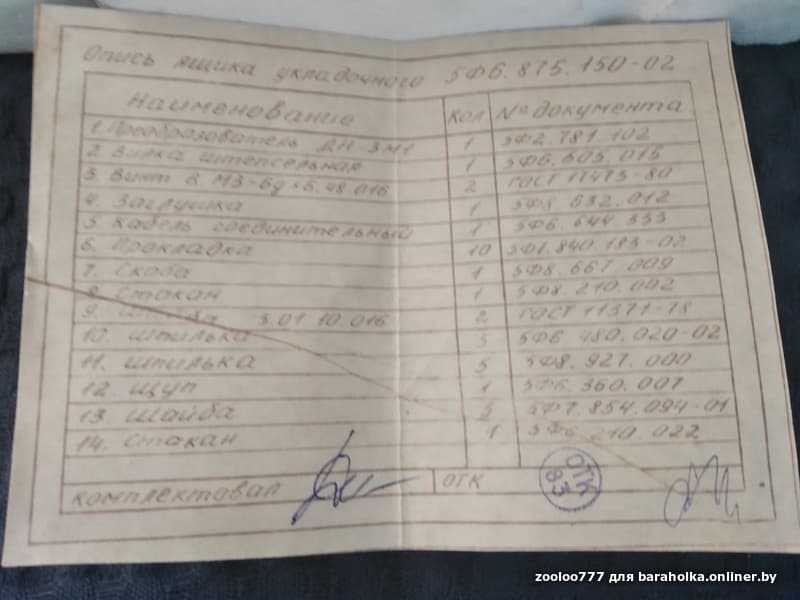 Опись ящика укладочного 5Ф6.875.150-02
Наименование Кол № документа
1. Преобразователь ДН-3М1 1 5Ф2.781.102
2. Вилка штепсельная 1 5Ф6.605.015
3. Винт В М3-6g×6.48.016 2 ГОСТ 17473-80
4. Заглушка 1 5Ф8.632.012
5. Кабель соединительный 1 5Ф6.644.333
6. Прокладка 10 5Ф7.840.183-02
7. Скоба 1 5Ф8.667.009
8. Стакан 1 5Ф8.210.002
9. Шайба 3.01 10.016 2 ГОСТ 11371-78
10. Шпилька 5 5Ф6.480.020-02
11. Шпилька 5 5Ф8.927.000
12. Щуп 1 5Ф6.360.007
13. Шайба 5 5Ф7.854.094-01
14. Стакан 1 5Ф6.210.022
комплектовал ОТК
ОТК
83
zooloo777 для baraholka.onliner.by